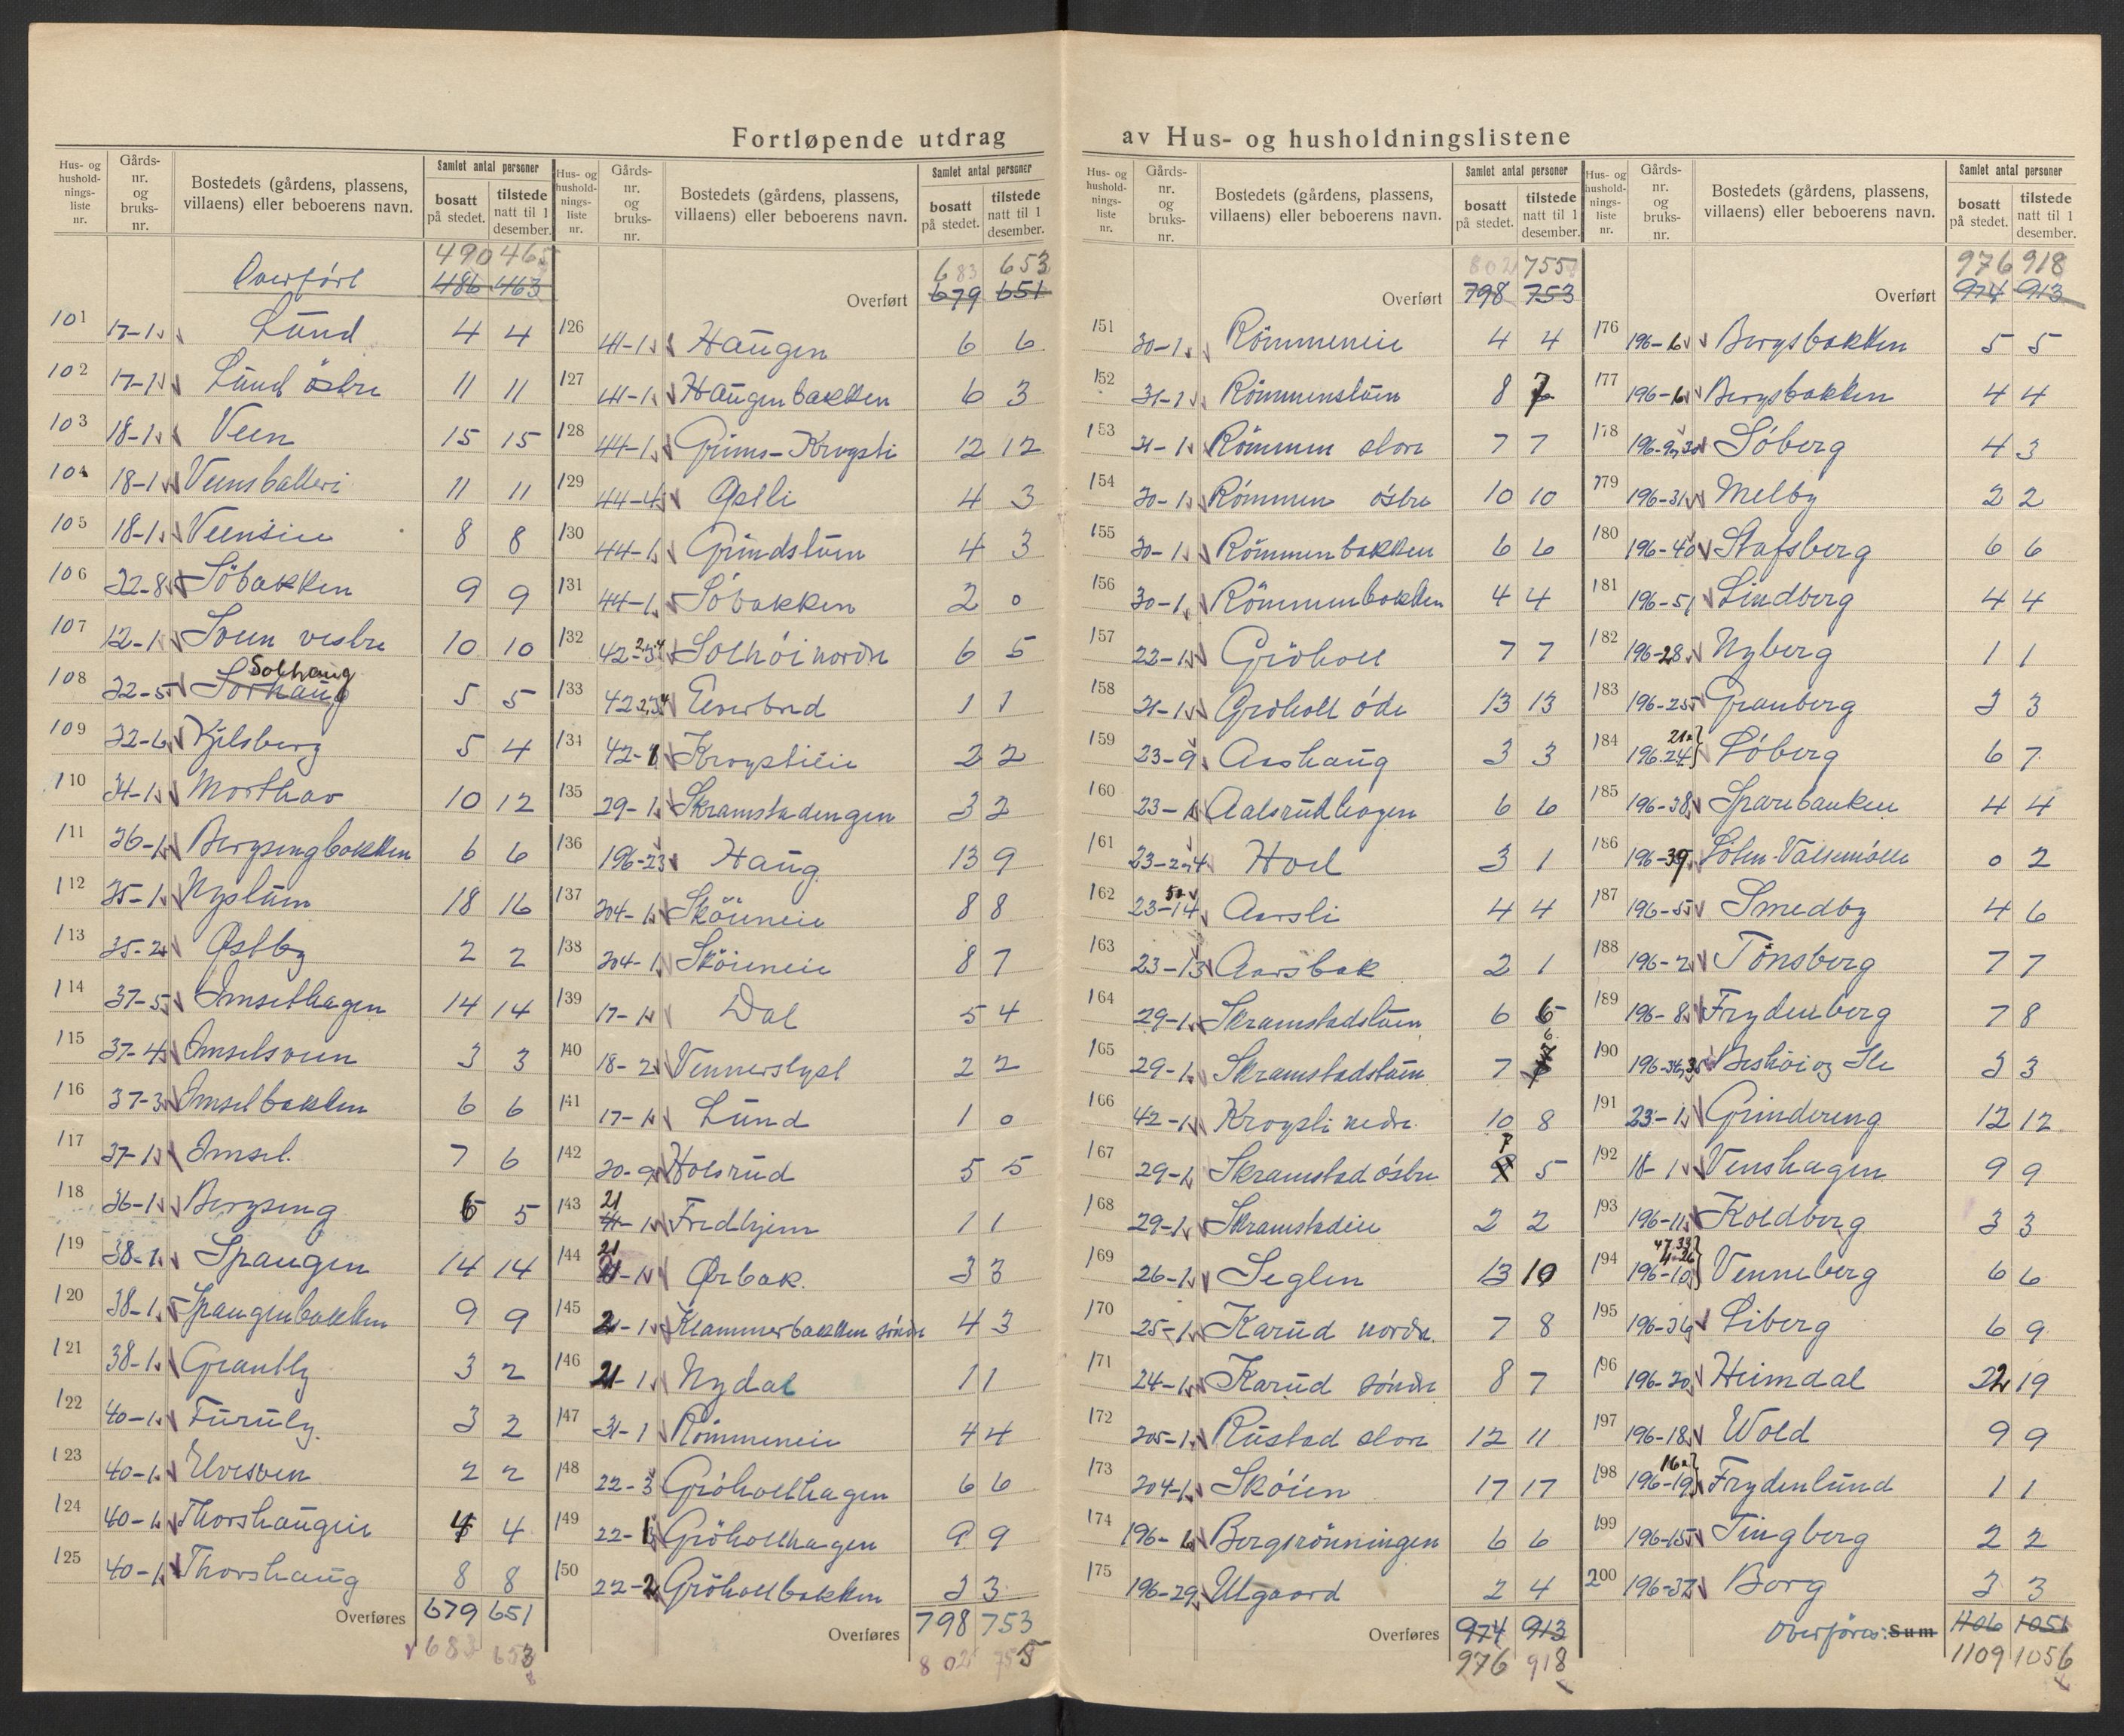 Fortløpende utdrag av Hus- og husholdningslistene
Hus- og hushold-nings-liste nr. Gårds-nr. og bruks-nr. Bostedets (gårdens, plassens, villaens) eller beboerens navn. Samlet antal personer bosatt på stedet. tilstede natt til 1 desember.
490 465
Overført 486 463
101 17-1 Lund 4 4
102 17-1 Lund östre 11 11
103 18-1 Veen 15 15
104 18-1 Veensbakken 11 11
105 18-1 Veenseie 8 8
106 22-8 Söbakken 9 9
107 12-1 Soen vestre 10 10
108 32-5 Sorhaug Solhaug 5 5
109 32-6 Kjelsberg 5 4
110 34-1 Morthav 10 12
111 36-1 Bergsengbakken 6 6
112 35-1 Nystuen 18 16
113 35-2 Østby 2 2
114 37-5 Imsethagen 14 14
115 37-4 Imsetsveen 3 3
116 37-3 Imsetbakken 6 6
117 37-1 Imset. 7 6
118 36-1 Bergseng 6 5
119 38-1 Spangen 14 14
120 38-1 Spangenbakken 9 9
121 38-1 Granlly 3 2
122 40-1 Furuly. 3 2
123 40-1 Elvesven 2 2
124 40-1 Thorshaugeie 4 4
125 40-1 Thorshaug 8 8
Overføres 679 651
683 653
Hus- og hushold-nings-liste nr. Gårds-nr. og bruks-nr. Bostedets (gårdens, plassens, villaens) eller beboerens navn. Samlet antal personer bosatt på stedet. tilstede natt til 1 desember.
683 653
Overført 679 651
126 41-1 Haugen 6 6
127 41-1 Haugenbakken 6 3
128 44-1 Grims-Krogsti 12 12
129 44-4 Østli 4 3
130 44-1 Grindstuen 4 3
131 44-1 Söbakken 2 0
132 42-2,3,4 Solhöi nordre 6 5
133 42 2,3,4 Everbred 1 1
134 42-1 Krogstieie 2 2
135 29-1 Skramstadengen 3 2
136 196-23 Haug 13 9
137 204-1 Sköieneie 8 8
138 204-1 Sköieneie 8 7
139 17-1 Dal 5 4
140 18-2 Vennerslyst 2 2
141 17-1 Lund 1 0
142 20-9 Holsrud 5 5
143 21-1 Fredhjem 1 1
144 21-1 Ørbak. 3 3
145 21-1 Klammerbakken söndre 4 3
146 21-1 Nydal 1 1
147 31-1 Römmeneie 4 4
148 22-3 Gröholthagen 6 6
149 22-1 Gröholthagen 9 9
150 22-2 Gröholtbakken 3 3
Overføres 798 753
802 755
Hus- og hushold-nings-liste nr. Gårds-nr. og bruks-nr. Bostedets (gårdens, plassens, villaens) eller beboerens navn. Samlet antal personer bosatt på stedet. tilstede natt til 1 desember.
802 755
Overført 798 753
151 30-1 Römmeneie 4 4
152 31-1 Römmenstuen 8 7
153 31-1 Römmen store 7 7
154 30-1 Römmen östre 10 10
155 30-1 Römmenbakken 6 6
156 30-1 Römmenbakken 4 4
157 22-1 Gröholt 7 7
158 21-1 Gröholt öde 13 13
159 23-9 Aashaug 3 3
160 23-1 Aalsrudhagen 6 6
161 23-2,4 Hoel 3 1
162 23-14 Aarsli 4 4
163 23-13 Aarsbak 2 1
164 29-1 Skramstadstuen 6 6
165 29-1 Skramstadstuen 7 6
166 42-1 Krogsti nedre. 10 8
167 29-1 Skramstad östre 7 5
168 29-1 Skramstadeie 2 2
169 26-1 Seglen 13 10
170 25-1 Karud nordre. 7 8
171 24-1 Karud söndre 8 7
172 205-1 Rustad store 12 11
173 204-1 Sköien 17 17
174 196-6 Bergsrönningen 6 6
175 196-29 Utgaard 2 4
Overføres 974 913
976 918
Hus- og hushold-nings-liste nr. Gårds-nr. og bruks-nr. Bostedets (gårdens, plassens, villaens) eller beboerens navn. Samlet antal personer bosatt på stedet. tilstede natt til 1 desember.
976 918
Overført 974 913
176 196-6 Bergsbakken 5 5
177 196-6 Bergsbakken 4 4
178 196-9,30 Söberg 4 3
179 196-31 Melby 2 2
180 196-40 Stafsberg 6 6
181 196-51 Lindberg 4 4
182 196-28 Nyberg 1 1
183 196-25 Granberg 3 3
184 196-24 Löberg 6 7
185 196-38 Sparebanken 4 4
186 196-39 Löten Valsemölle 0 2
187 196-55 Smedby 4 6
188 196-2 Tönsberg 7 7
189 196-8 Frydenberg 7 8
190 196-34,35 3 3
191 23-1 Grindereng 12 12
192 18-1 Venshagen 9 9
193 196-11 Koldberg 3 3
194 196-10 Venneberg 6 6
195 196-36 Liberg 6 9
196 196-20 Heimdal 22 19
197 196-18 Wold 9 9
198 196-19 Frydenlund 1 1
199 196-15 Tingberg 2 2
200 196-37 Borg 3 3
Overföres: Sum 1106 1051
1109 1056